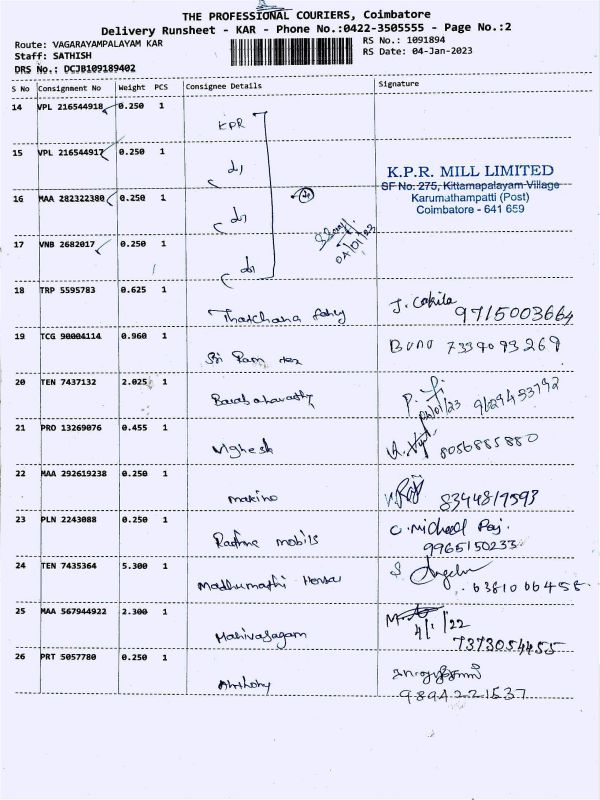 THE PROFESSIONAL COURIERS, Coimbatore
Delivery Runsheet - KAR - Phone No.:0422-3505555 - Page No.:2
Route: VAGARAYAMPALAYAM KAR
RS No.: 1091894
Staff: SATHISH
RS Date: 04-Jan-2023
DRS No.: DCJB109189402
S No Consignment No Weight PCS Consignee Details Signature
14 VPL 216544918 0.250 1 KPR
15 VPL 216544917 0.250 1
K.P.R. MILL LIMITED
SF No: 275, Kittamapalayam Village
16 MAA 282322380 0.250 1
Karumathampatti (Post)
Coimbatore - 641 659
04/01/23
17 VNB 2682017 0.250 1
18 TRP 5595783 0.625 1
9715003664
19 TCG 90004114 0.960 1 Sri Ram tex
7339093269
20 TEN 7437132 2.025 1
21 PRO 13269076 0.455 1 Vighesh
8056885880
22 MAA 292619238 0.250 1 makino
8344817593
23 PLN 2243088 0.250 1 mobils
C. Micheal Raj.
9965150233
24 TEN 7435364 5.300 1 Madhumathi
S Angelin
6381006458
25 MAA 567944922 2.300 1
4/1/22
7373054455
26 PRT 5057780 0.250 1 Anthony
9894221537